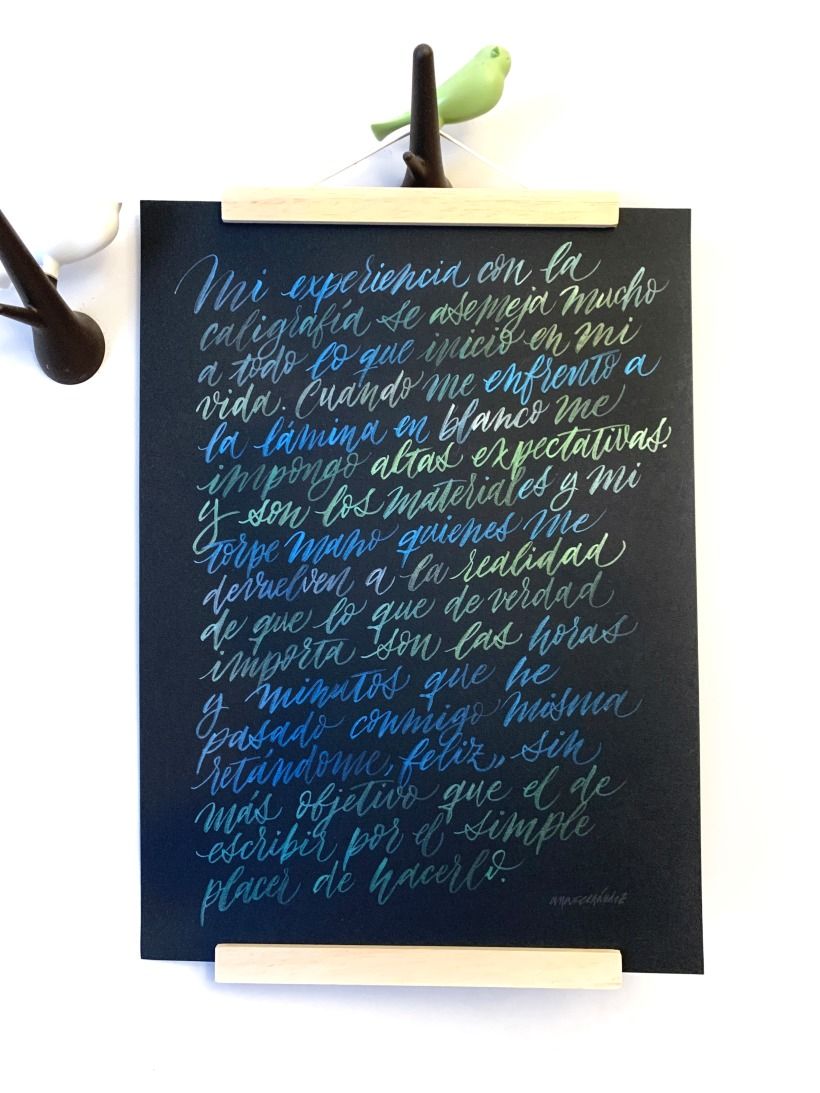 Mi experiencia con la
caligrafía se asemeja mucho
a todo lo que inicio en mi
vida. Cuando me enfrento a
la lámina en blanco me
impongo altas expectativas.
y son los materiales y mi
torpe mano quienes me
devuelven a la realidad
de que lo que de verdad
importa son las horas
y minutos que he
pasado conmigo misma
retándome, feliz, sin
más objetivo que el de
escribir por el simple
placer de hacerlo.